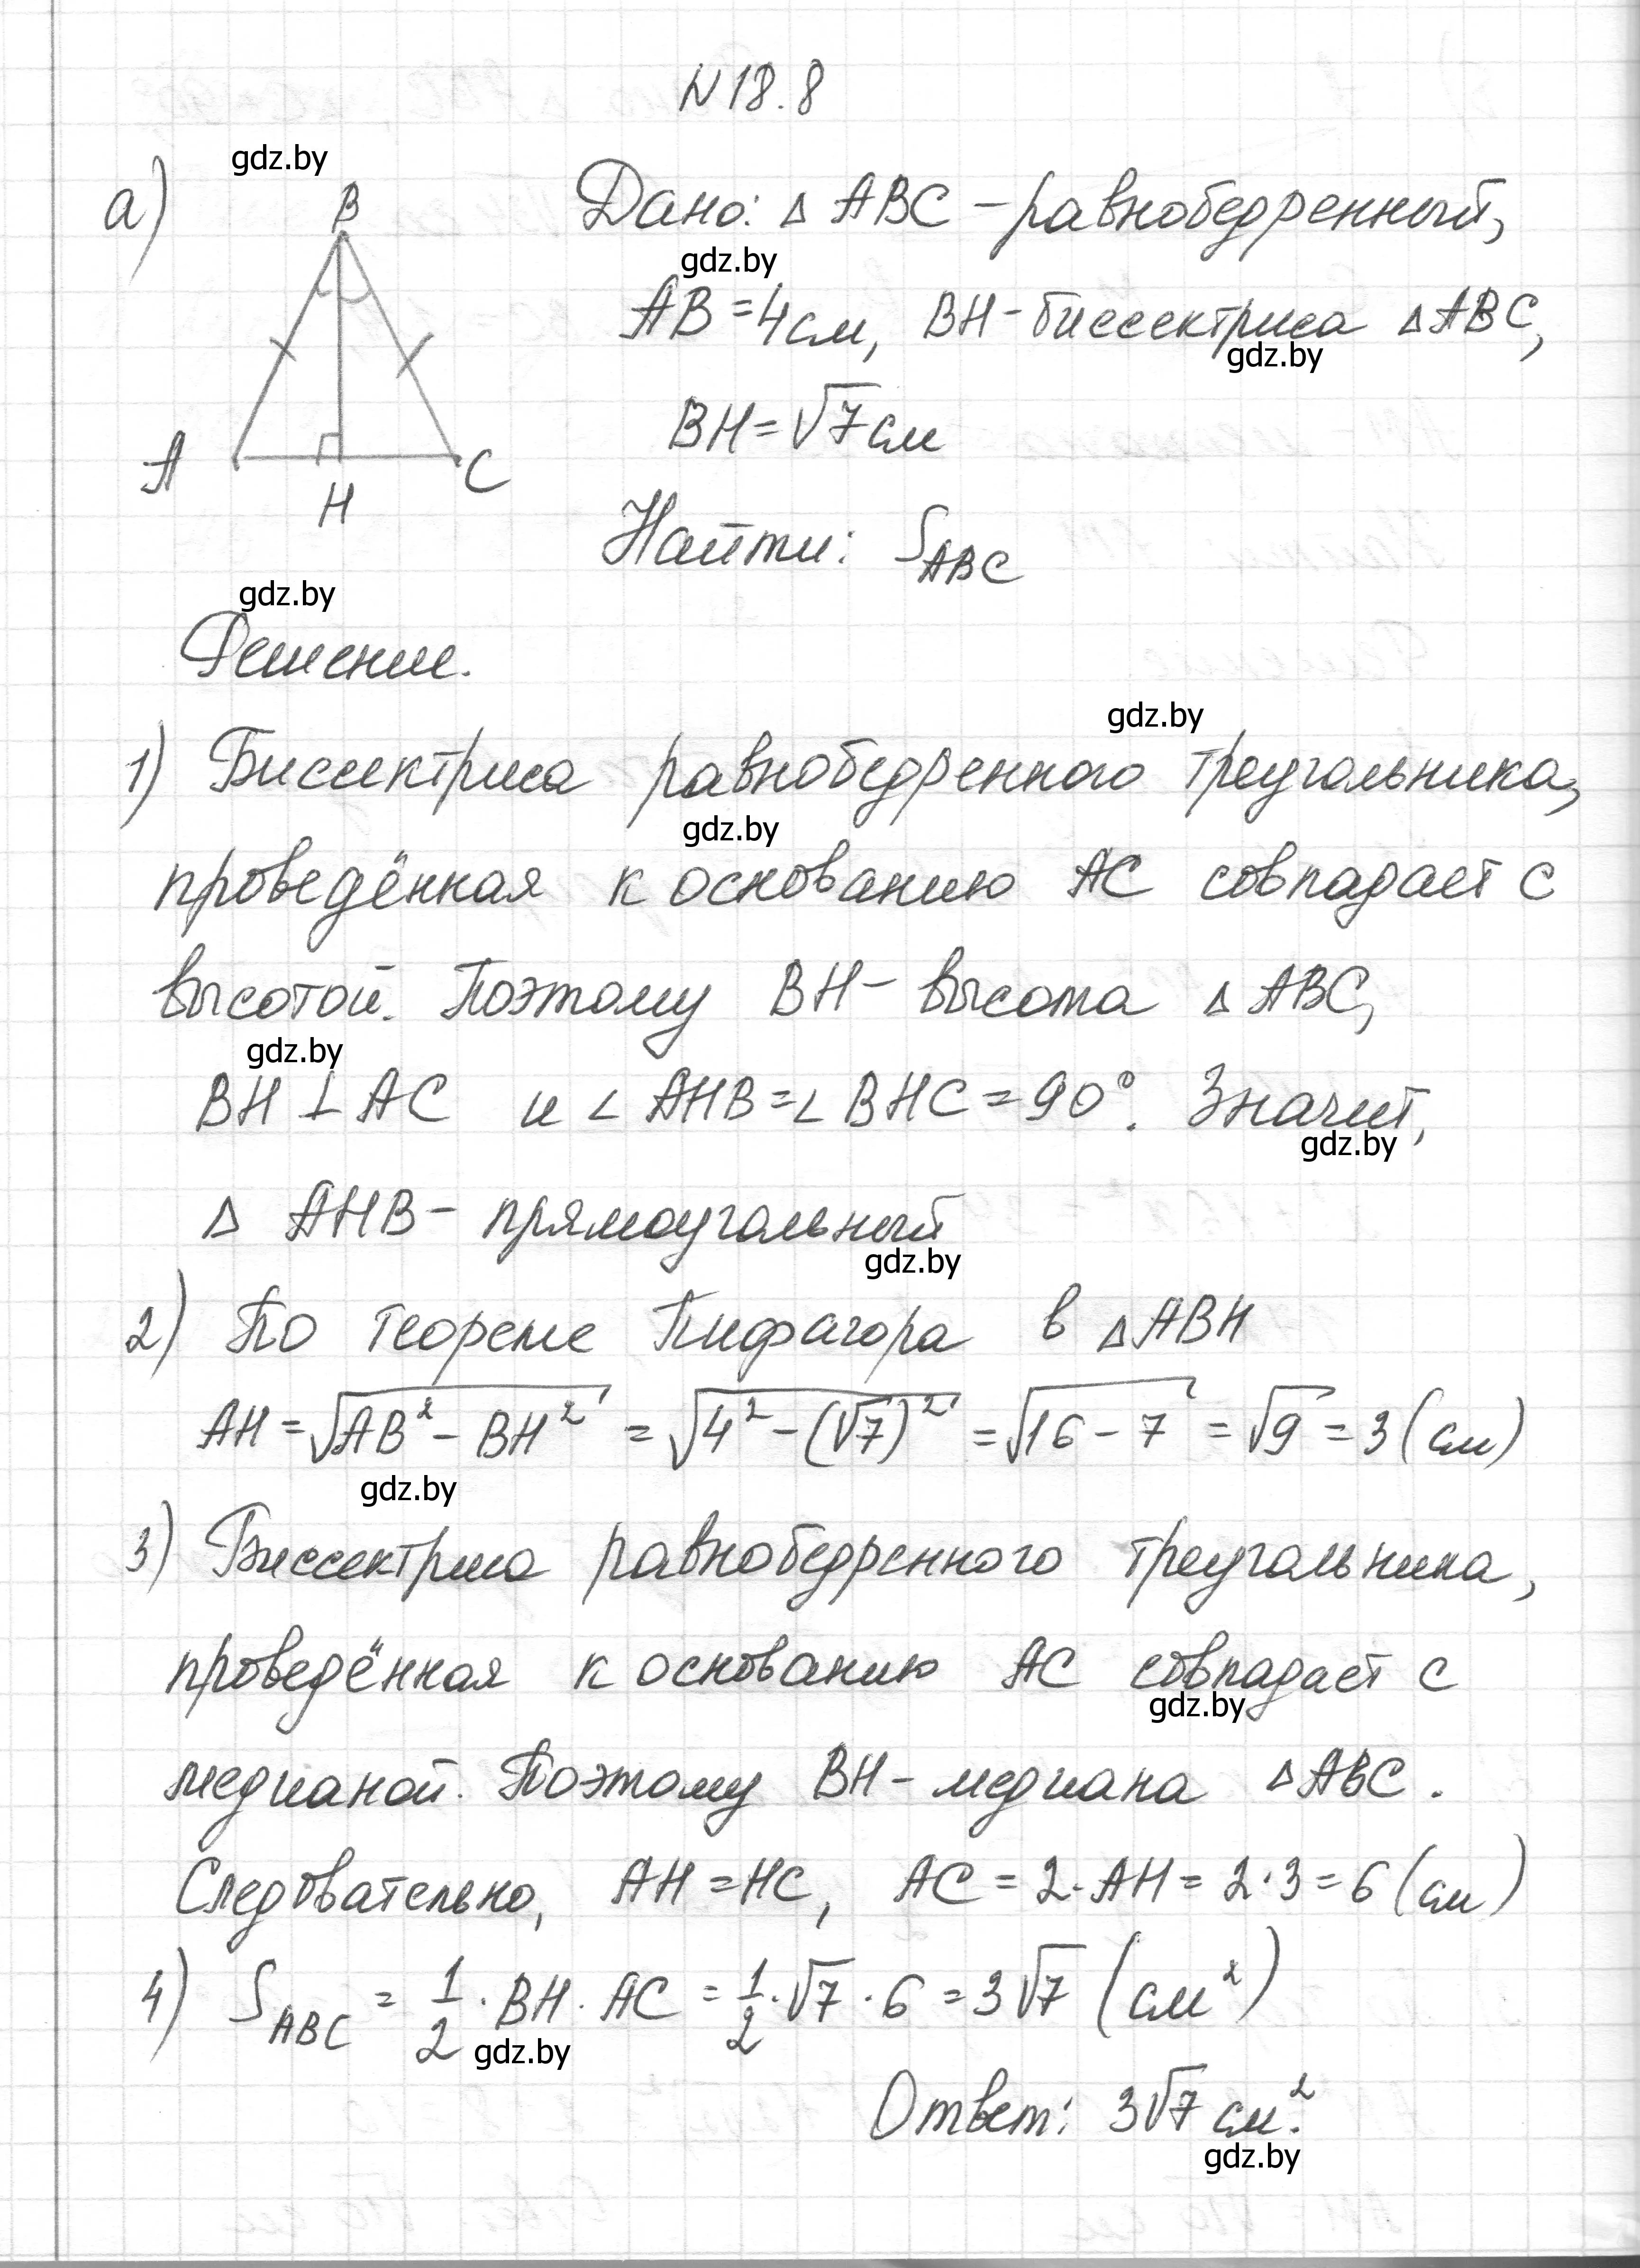 N 18.8
gdz.by
а) B Дано: △ ABC – равнобедренный,
gdz.by
AB = 4 см, BH – биссектриса △ ABC,
gdz.by
BH = √7 см
A H C
Найти: S_ABC
gdz.by
Решение.
gdz.by
1) Биссектриса равнобедренного треугольника,
gdz.by
проведённая к основанию AC совпадает с
высотой. Поэтому BH – высота △ ABC,
gdz.by
BH ⊥ AC и ∠ AHB = ∠ BHC = 90°. Значит,
gdz.by
△ AHB – прямоугольный
gdz.by
2) По теореме Пифагора в △ ABH
AH = √(AB² – BH²) = √(4² – (√7)²) = √(16 – 7) = √9 = 3 (см)
gdz.by
3) Биссектриса равнобедренного треугольника,
проведённая к основанию AC совпадает с
gdz.by
медианой. Поэтому BH – медиана △ ABC.
Следовательно, AH = HC, AC = 2 · AH = 2 · 3 = 6 (см)
4) S_ABC = 1/2 · BH · AC = 1/2 · √7 · 6 = 3√7 (см²)
gdz.by
Ответ: 3√7 см².
gdz.by